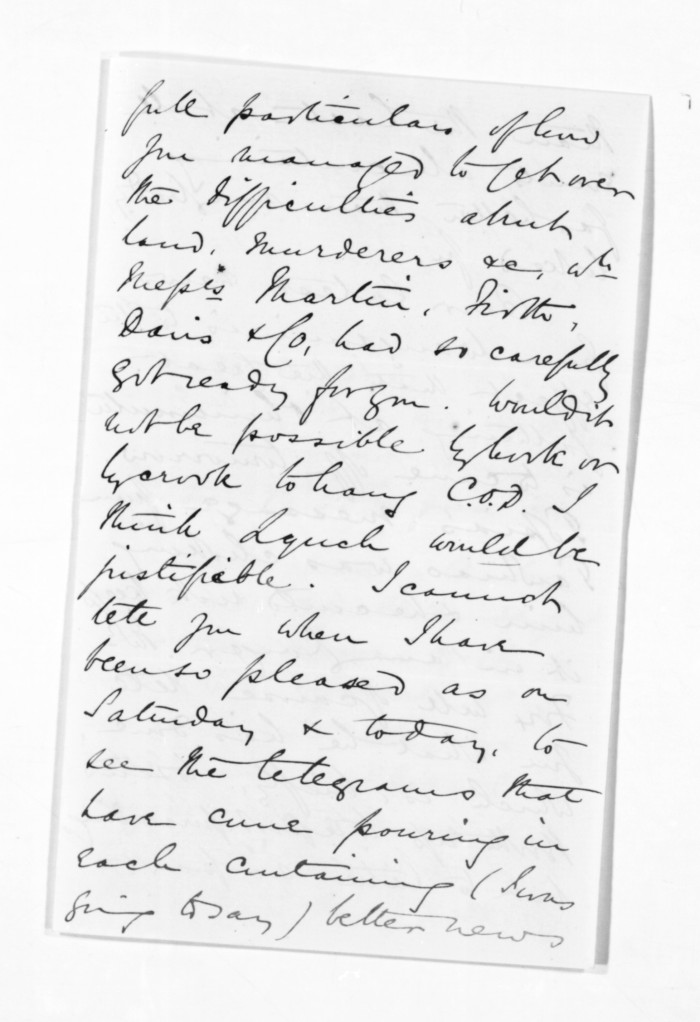 full particulars of how
you managed to get over
the difficulties about
land, murderers &c, wh
Messrs Martin, Firth,
Davis & Co, had so carefully
got ready for you. Would it
not be possible by hook or
by crook to hang C.O.D. I
think Lynch would be
justifiable. I cannot
tell you when I have
been so pleased as on
Saturday & today, to
see the telegrams that
have come pouring in
each containing (I was
going to say) better news